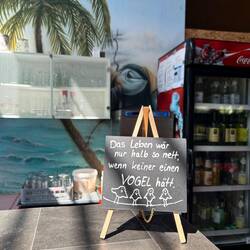 Das Leben wär
nur halb so nett,
wenn keiner einen
VOGEL hätt.
Coca-Cola